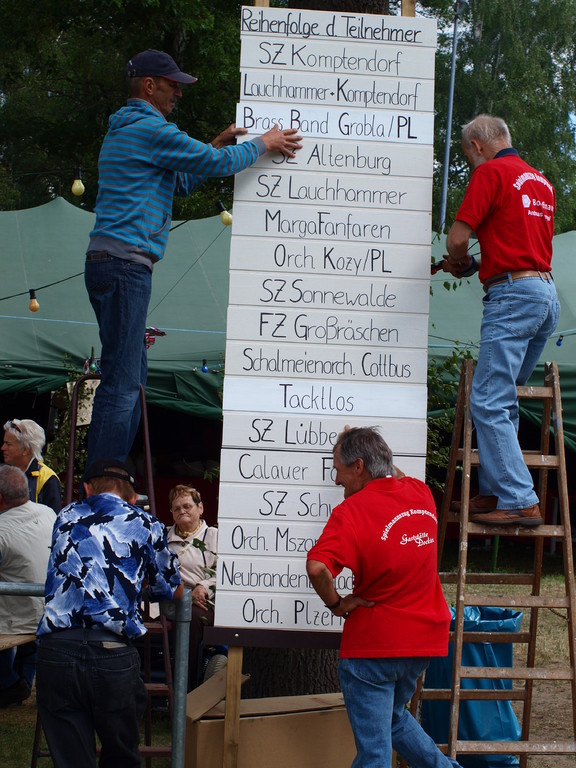 Reihenfolge d. Teilnehmer
SZ Komptendorf
Lauchhammer+Komptendorf
Brass Band Grobla/PL
SZ Altenburg
SZ Lauchhammer
MargaFanfaren
Orch. Kozy/PL
SZ Sonnewalde
FZ Großräschen
Schalmeienorch. Cottbus
Tacktlos
SZ Lübbe
Calauer Fa
SZ Schw
Orch. Mszan
Neubrandenb
Orch. Plze
Spielmannszug Komptendorf
Gaststätte